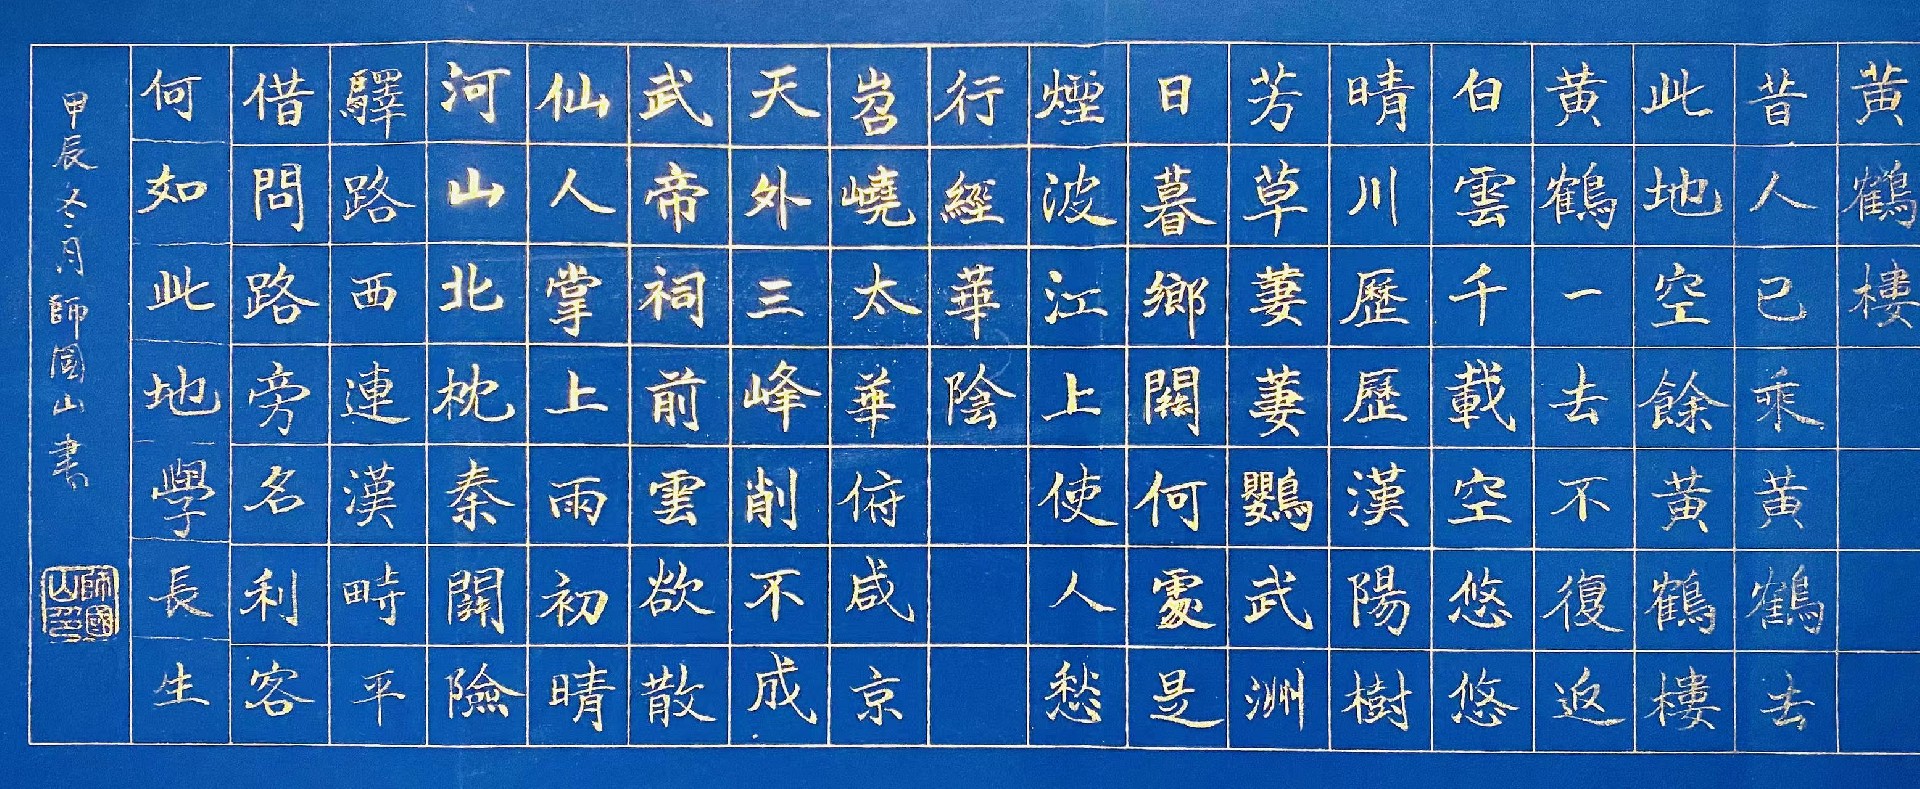 黃鶴樓
昔人已乘黃鶴去
此地空餘黃鶴樓
黃鶴一去不復返
白雲千載空悠悠
晴川歷歷漢陽樹
芳草萋萋鸚武洲
日暮鄉關何處是
煙波江上使人愁
行經華陰
岧嶢太華俯咸京
天外三峰削不成
武帝祠前雲欲散
仙人掌上雨初晴
河山北枕秦關險
驛路西連漢畤平
借問路旁名利客
何如此地學長生
甲辰冬月師國山書
師國山印